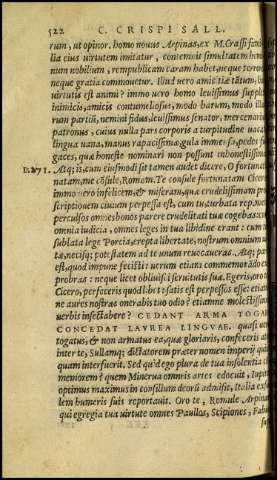 522 C. CRISPI SALL.
rum, ut opinor. homo nouus Arpinas, ex M. Crassi fami
lia eius uirtutem imitatur, contemnit simultatem homi
num nobilium, rempublicam caram habet, neque terrore
neque gratia commouetur. Illud uero amicitiæ tātum, ac
uirtutis est animi? immo uero homo leuissimus supplex
inimicis, amicis contumeliosus, modo harum, modo illa
rum partiū, nemini fidus, leuissimus senator, mercenarius
patronus, cuius nulla pars corporis a turpitudine uacat,
lingua uana, manus rapacissimæ, gula immensa, pedes fu
gaces, quæ honeste nominari non possunt inhonestissima.
Atq; is, cum eiusmodi sit tamen audet dicere, O fortunatam
natam, me cōsule, Romam. Te consule fortunatam Cicero
immo uero infelicem, & miseram, quæ crudelissimam pro
scriptionem ciuium perpessa est, cum tu, urbata rep. metu
perculsos omnes bonos parere crudelitati tuæ cogebas, cum
omnia iudicia, omnes leges in tua libidine erant: cum tu
sublata lege Porcia, erepta libertate, nostrum omnium ui
tæ, necisq; potestatem ad te unum reuocaueras. Atq; parū
est, quod impune fecisti: uerum etiam commemorādo ex
probras: neque licet obliuisci seruitutis suæ. Egeris, oro te
Cicero, perfeceris quod libet: satis est perpessos esse: etiam
ne aures nostras onerabis tuo odio? etiamne molestissimis
uerbis insectabere? CEDANT ARMA TOGAE
CONCEDAT LAVREA LINGVAE. quasi uero
togatus, & non armatus ea, quæ gloriaris, confeceris atq;
inter te, Sullamq; dictatorem præter nomen imperij quic
quam interfuerit. Sed quid ego plura de tua insolentia com
memorem? quem Minerua omneis artes edocuit, Iupiter
optimus maximus in consilium deorū admisit, Italia exu
lem humeris suis reportauit. Oro te, Romule Arpinas,
qui egregia tua uirtute omnes Paullos, Scipiones, Fabios